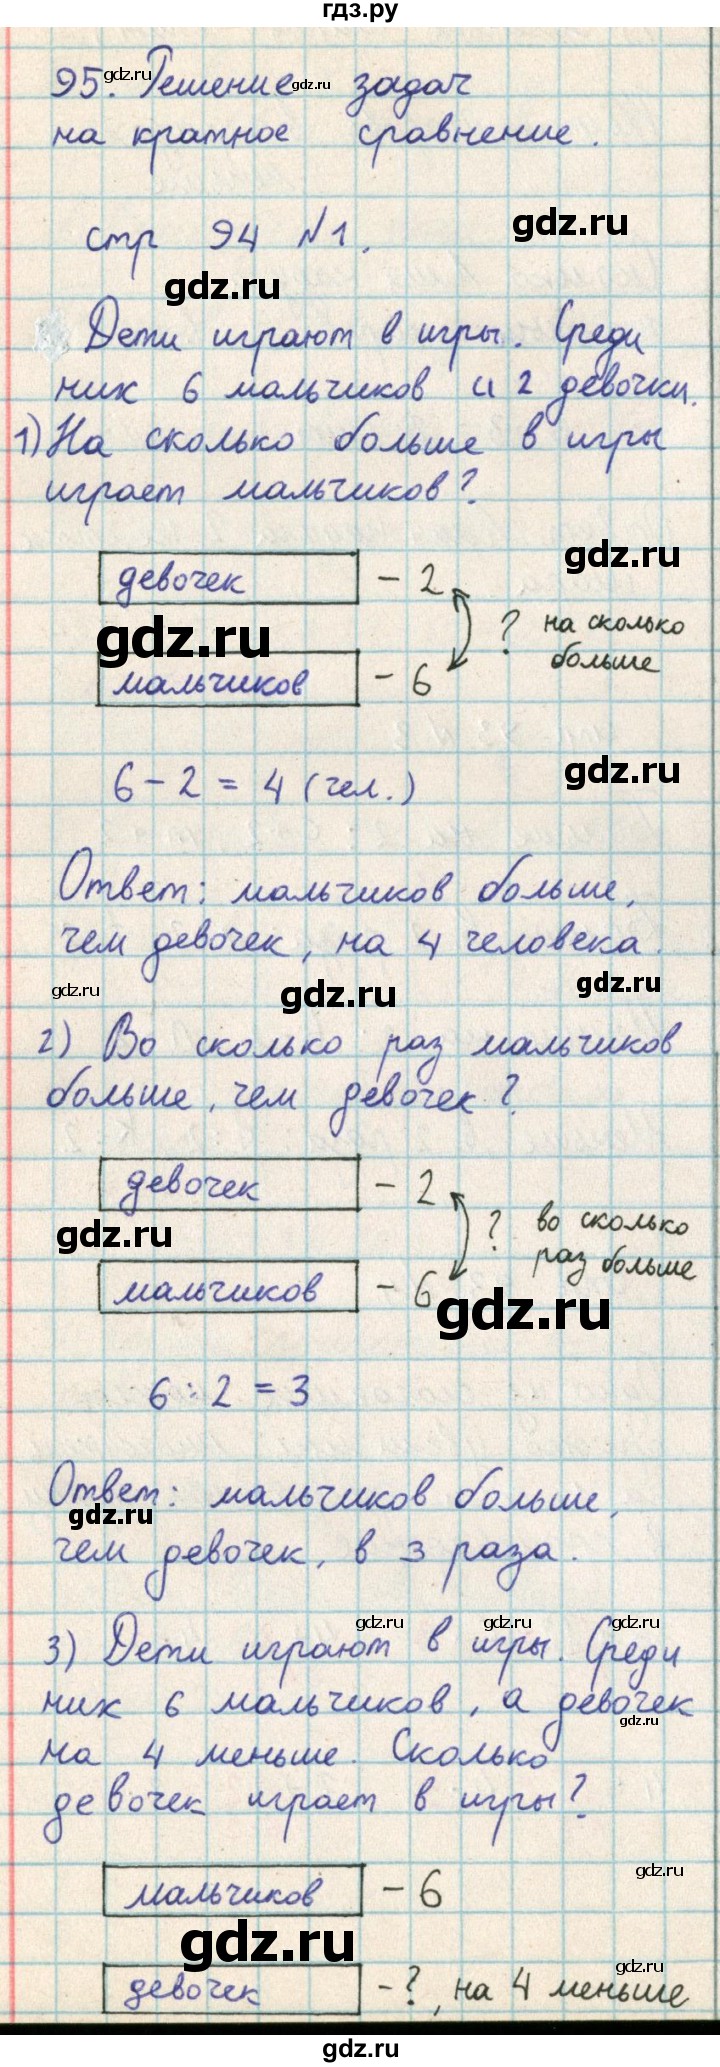 гдз.ру
95. Решение задач
на кратное сравнение.
стр 94 №1.
Дети играют в игры. Среди
них 6 мальчиков и 2 девочки.
1) На сколько больше в игры
играет мальчиков?
девочек - 2
? на сколько
больше
мальчиков - 6
6 - 2 = 4 (чел.)
Ответ: мальчиков больше,
чем девочек, на 4 человека.
2) Во сколько раз мальчиков
больше, чем девочек?
девочек - 2
? во сколько
раз больше
мальчиков - 6
6 : 2 = 3
Ответ: мальчиков больше,
чем девочек, в 3 раза.
3) Дети играют в игры. Среди
них 6 мальчиков, а девочек
на 4 меньше. Сколько
девочек играет в игры?
мальчиков - 6
девочек - ?, на 4 меньше
gdz.ru